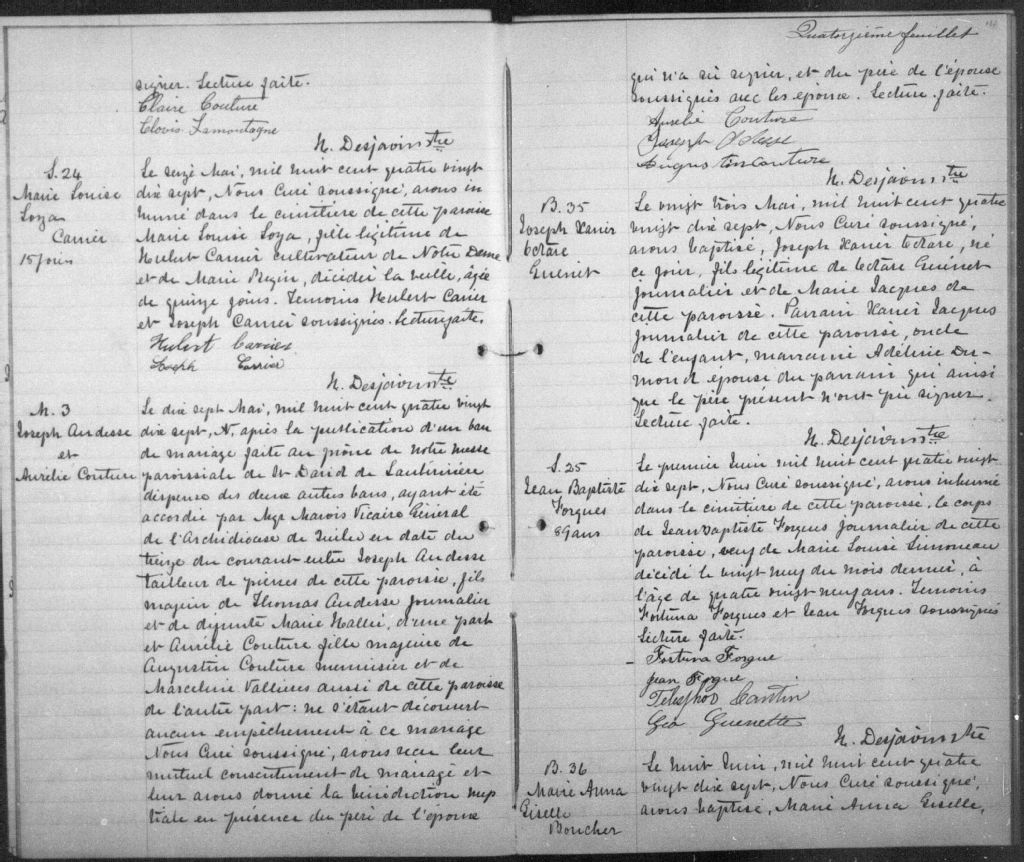 signer. Lecture faite.
Claire Couture
Clovis Lamontagne
N. Desjavins ptre
S. 24
Marie Louise
Loza
Carrier
15 jours
Le seize Mai, mil huit cent quatre vingt
dix sept, Nous Curé soussigné, avons in
humé dans le cimitière de cette paroisse
Marie Louise Loza, fille légitime de
Hubert Carrier cultivateur de Notre Dame
et de Marie décidée la veille, âgée
de quinze jours. Temoins Hubert Carrier
et Joseph Carrier soussignés. Lecture faite.
Hubert Carrier
Joseph Carrier
N. Desjavins ptre
M. 3
Joseph Audesse
et
Aurélie Couture
Le dix sept Mai, mil huit cent quatre vingt
dix sept, N. après la publication d'un ban
de mariage faite au prône de notre messe
paroissiale de St David de Lauberivière
dispense des deux autres bans, ayant été
accordée par Mgr Marois Vicaire Général
de l'Archidiocèse de Québec en date du
treize du courant entre Joseph Audesse
tailleur de pierres de cette paroisse, fils
majeur de Thomas Audesse Journalier
et de défunte Marie Hallée, d'une part
et Aurélie Couture fille majeure de
Augustin Couture menuisier et de
Marceline Vallières aussi de cette paroisse
de l'autre part: ne s'étant découvert
aucun empêchement à ce mariage
Nous Curé soussigné, avons reçu leur
mutuel consentement de mariage et
leur avons donné la bénédiction nup
tiale en présence du père de l'époux
Quatorzième feuillet
qui n'a su signer, et du père de l'épouse
soussignés avec les époux. Lecture faite.
Aurélie Couture
Joseph Odesse
Augustin Couture
N. Desjavins ptre
B. 35
Joseph Xavier
Octave
Guenet
Le vingt trois Mai, mil huit cent quatre
vingt dix sept, Nous Curé soussigné,
avons baptisé, Joseph Xavier Octave, né
ce jour, fils légitime de Octave Guenet
journalier et de Marie Jacques de
cette paroisse. Parrain Xavier Jacques
journalier de cette paroisse, oncle
de l'enfant, marraine Adéline Du-
mond épouse du parrain qui ainsi
que le père présent n'ont pu signer.
Lecture faite.
N. Desjavins ptre
S. 25
Jean Baptiste
Forgues
89 ans
Le premier Juin mil huit cent quatre vingt
dix sept, Nous Curé soussigné, avons inhumé
dans le cimitière de cette paroisse, le corps
de Jean Baptiste Forgues Journalier de cette
paroisse, veuf de Marie Louise Simoneau
décidé le vingt neuf du mois dernier, à
l'âge de quatre vingt neuf ans. Temoins
Fortuna Forgues et Jean Forgues soussignés
Lecture faite.
Fortuna Forgue
Jean Forgue
Telesphor Cantin
Géo Guenette
N. Desjavins ptre
B. 36
Marie Anna
Giselle
Boucher
Le huit Juin, mil huit cent quatre
vingt dix sept, Nous Curé soussigné,
avons baptisé, Marie Anna Giselle,